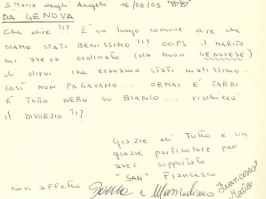 S. Maria degli Angeli 16/08/03
DA GENOVA
Che dire !!? È un luogo comune dire che
SIAMO STATI BENISSIMO !!? OOPS il MARITO
mi aveva ordinato (da buon GENOVESE)
di dirvi che eravamo stati malissimo...
così NON PAGAVAMO... ORMAI È TARDI
È TUTTO NERO SU BIANCO... rischierò
il DIVORZIO ?!?
Grazie di Tutto e un
grazie particolare per
aver sopportato
"SAN" Francesco
con affetto e Massimiliano
Francesco
Maria